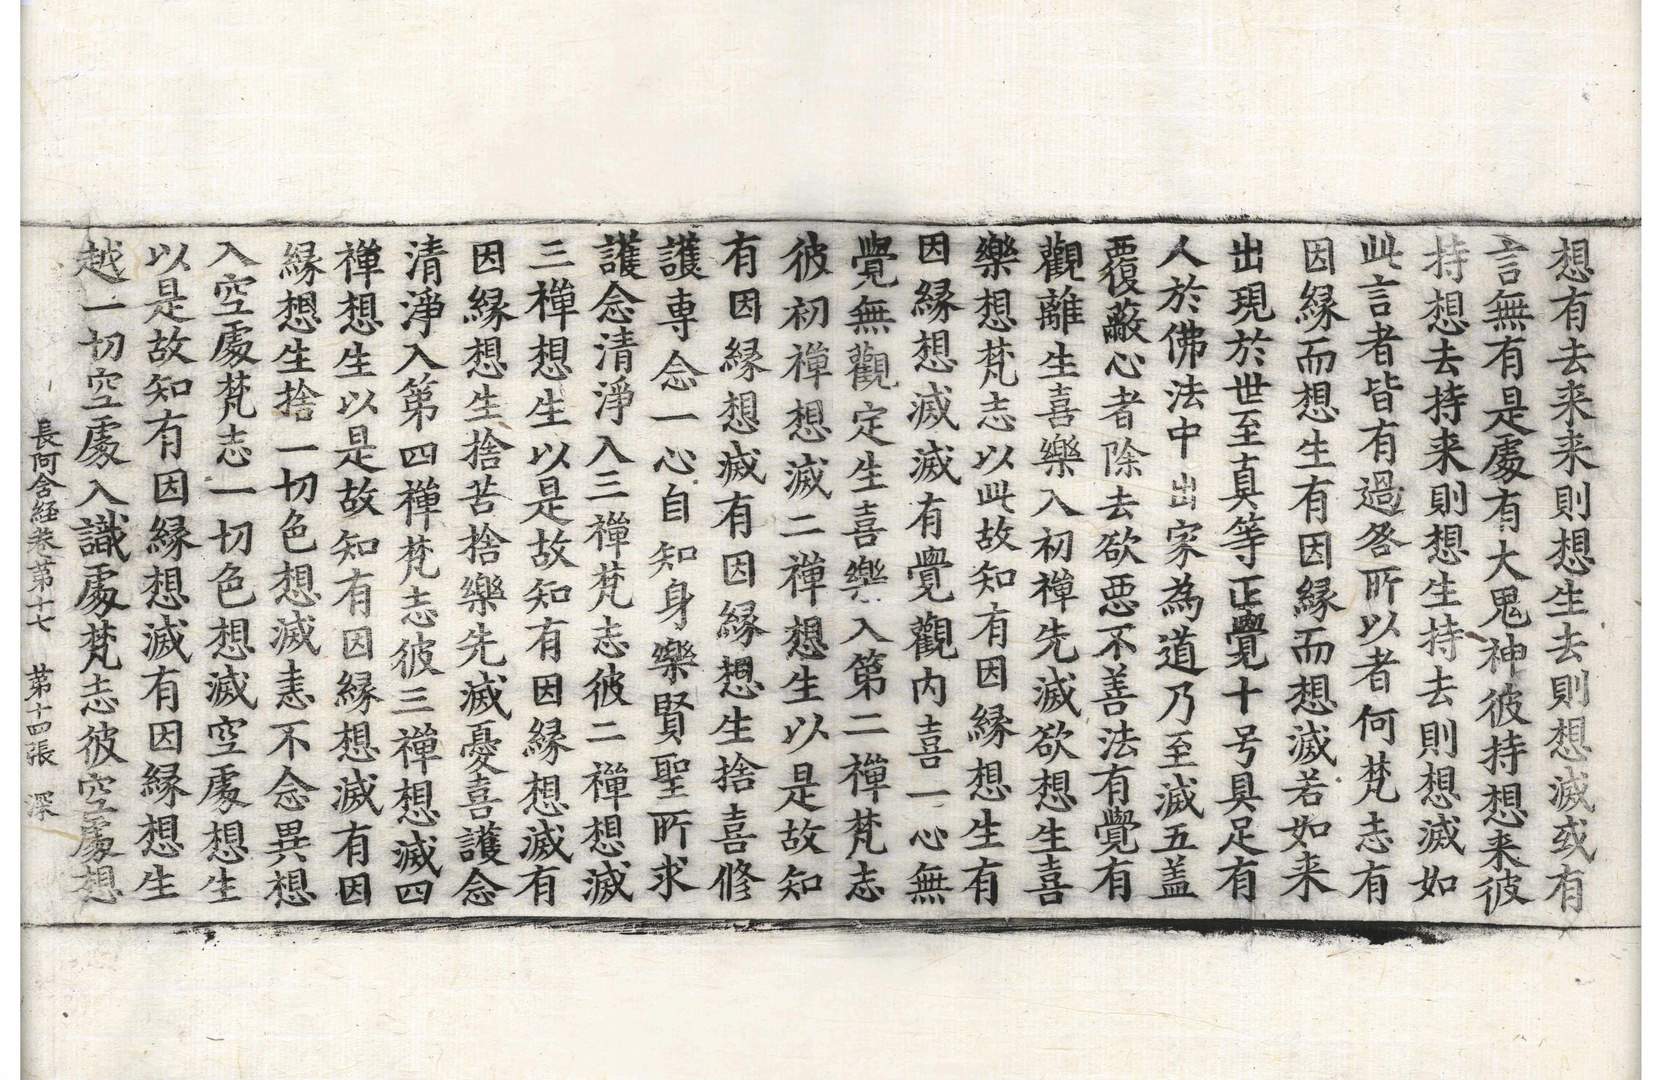 想有去来来則想生去則想滅或有
言無有是處有大鬼神彼持想来彼
持想去持来則想生持去則想滅如
此言者皆有過咎所以者何梵志有
因縁而想生有因縁而想滅若如来
出現於世至真等正覺十号具足有
人於佛法中出家為道乃至滅五盖
覆蔽心者除去欲惡不善法有覺有
觀離生喜樂入初禪先滅欲想生喜
樂想梵志以此故知有因縁想生有
因縁想滅滅有覺觀内喜一心無
覺無觀定生喜樂入第二禪梵志
彼初禪想滅二禪想生以是故知
有因縁想滅有因縁想生捨喜修
護専念一心自知身樂賢聖所求
護念清淨入三禪梵志彼二禪想滅
三禪想生以是故知有因縁想滅有
因縁想生捨苦捨樂先滅憂喜護念
清淨入第四禪梵志彼三禪想滅四
禪想生以是故知有因縁想滅有因
縁想生捨一切色想滅恚不念異想
入空處梵志一切色想滅空處想生
以是故知有因縁想滅有因縁想生
越一切空處入識處梵志彼空處想
長阿含経卷第十七 第十四張 深